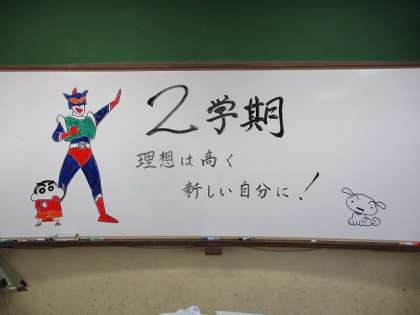 2学期
理想は高く
新しい自分に!